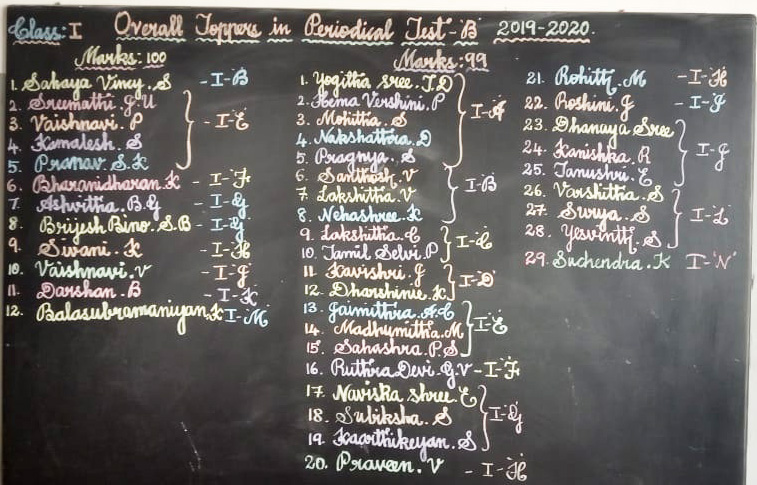 Class: I Overall Toppers in Periodical Test-B 2019-2020.
Marks: 100
1. Sahaya Vincy. S - I-B
2. Sreemathi. G.U
3. Vaishnavi. P - I-E
4. Kamalesh. S
5. Pranav S.K
6. Bharanidharan. K - I-F
7. Ashvitha. B.G - I-G
8. Brijesh Bino. S.B - I-G
9. Sivani. K - I-H
10. Vaishnavi. V - I-J
11. Darshan. B - I-K
12. Balasubramaniyan. K I-M
Marks: 99
1. Yogitha Sree. J.D
2. Hema Varshini. P
3. Mohitha. S I-A
4. Nakshathra. D
5. Pragnya. S
6. Santhosh. V
7. Lakshitha. V I-B
8. Nehashree. K
9. Lakshitha. C I-C
10. Tamil Selvi. P
11. Kavishri. J I-D
12. Dharshinie. K
13. Jaimithra. A.C
14. Madhumitha. M I-E
15. Sahashra. P.S
16. Ruthra Devi. G.V - I-F
17. Naviska Shree. E
18. Subiksha. S I-G
19. Kaarthikeyan. S
20. Praveen. V - I-H
21. Rohitth. M - I-H
22. Roshini. J - I-J
23. Dhanaya Sree
24. Kanishka. R I-J
25. Tanushri. E
26. Varshitha. S
27. Surya. S I-L
28. Yesvinth. S
29. Suchendra. K I-N